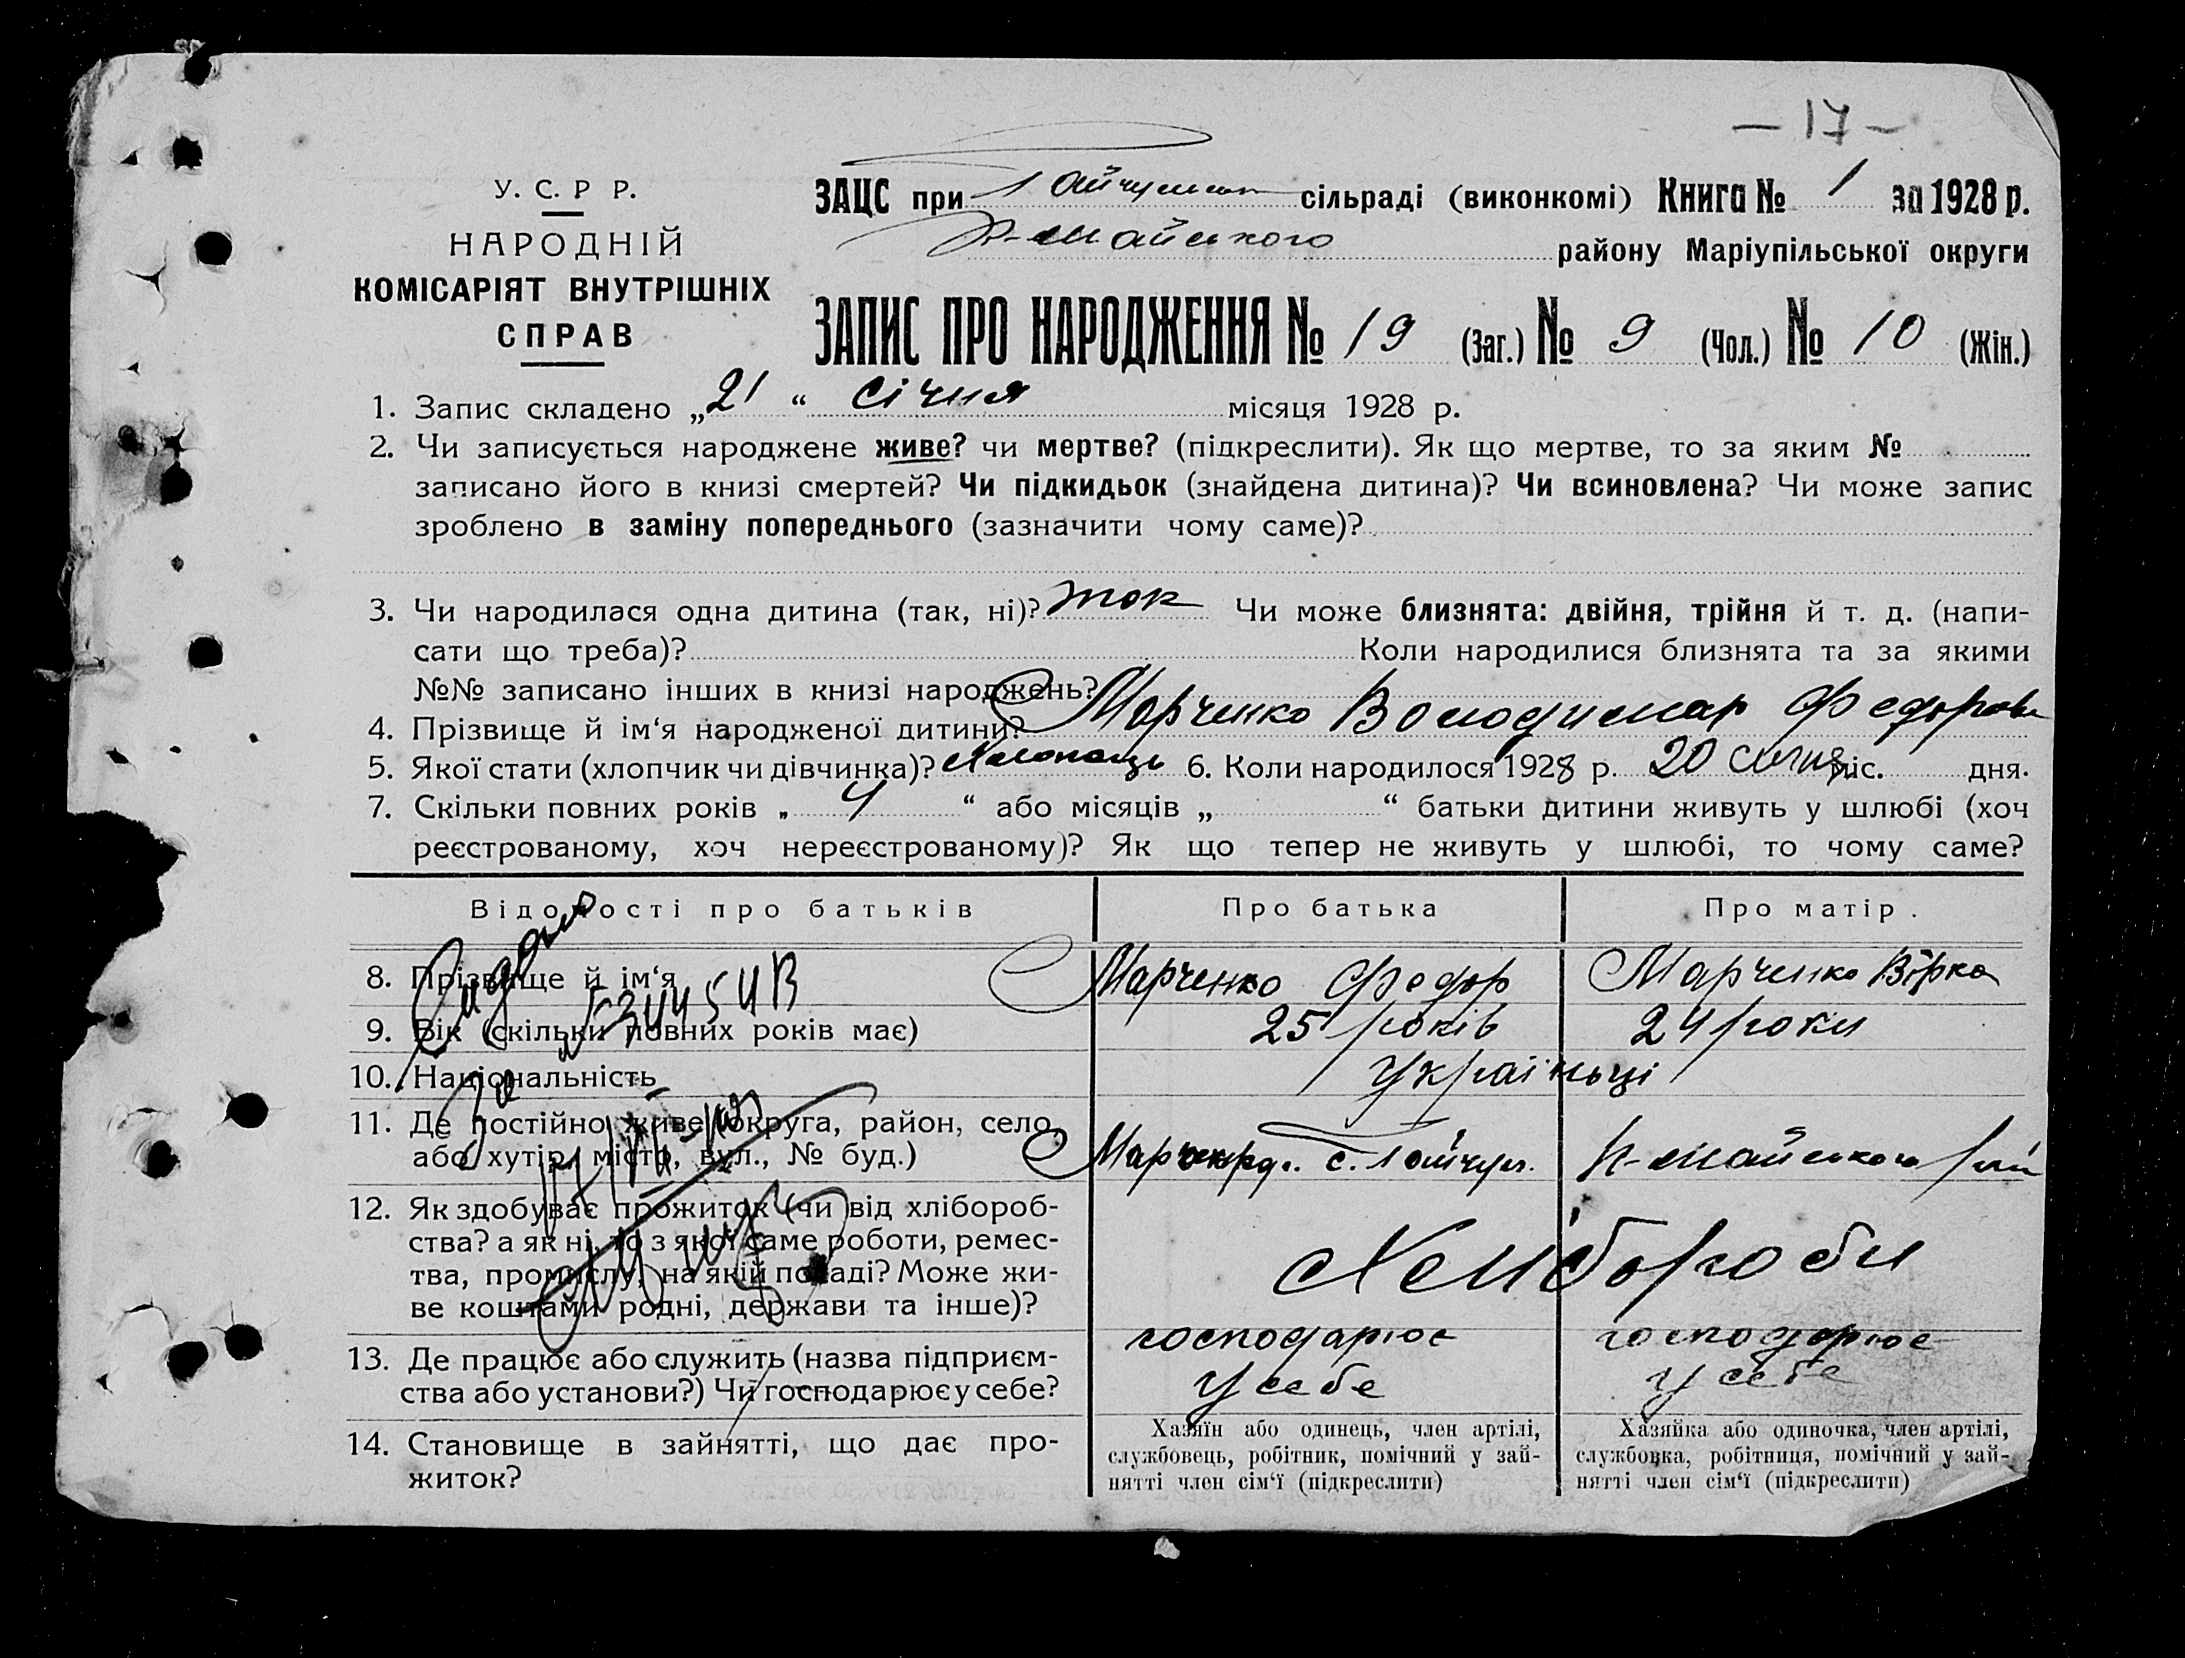 – 17 –
У. С. Р Р.
НАРОДНІЙ
КОМІСАРІЯТ ВНУТРІШНІХ
СПРАВ
ЗАЦС при сільраді (виконкомі) Книга № 1 за 1928 р.
-майського району Маріупільської округи
ЗАПИС ПРО НАРОДЖЕННЯ № 19 (Заг.) № 9 (Чол.) № 10 (Жін.)
1. Запис складено „21“ січня місяця 1928 р.
2. Чи записується народжене живе? чи мертве? (підкреслити). Як що мертве, то за яким №
записано його в книзі смертей? Чи підкидьок (знайдена дитина)? Чи всиновлена? Чи може запис
зроблено в заміну попереднього (зазначити чому саме)?
3. Чи народилася одна дитина (так, ні)? так Чи може близнята: двійня, трійня й т. д. (напи-
сати що треба)? Коли народилися близнята та за якими
№№ записано інших в книзі народжень?
4. Прізвище й ім‘я народженої дитини? Марченко Володимар Федоров
5. Якої стати (хлопчик чи дівчинка)? Хлопець 6. Коли народилося 1928 р. 20 січня міс. дня.
7. Скільки повних років „ 4 “ або місяців „ “ батьки дитини живуть у шлюбі (хоч
реєстрованому, хоч нереєстрованому)? Як що тепер не живуть у шлюбі, то чому саме?
Відомості про батьків Про батька Про матір.
8. Прізвище й ім‘я Марченко Федор Марченко Вірка
9. Вік (скільки повних років має) 25 років 24 роки
10. Національність Українці
11. Де постійно живе (округа, район, село,
або хутір, місто, вул., № буд.) с. -майського
12. Як здобуває прожиток (чи від хлібороб-
ства? а як ні, то з якої саме роботи, ремес-
тва, промислу, на якій посаді? Може жи-
ве коштами родні, держави та інше)?
Хлібороби
13. Де працює або служить (назва підприєм-
ства або установи?) Чи господарює у себе?
господарює у себе
господарює у себе
14. Становище в зайнятті, що дає про-
житок?
Хазяїн або одинець, член артілі,
службовець, робітник, помічний у зай-
нятті член сім‘ї (підкреслити)
Хазяйка або одиночка, член артілі,
службовка, робітниця, помічний у зай-
нятті член сім‘ї (підкреслити)